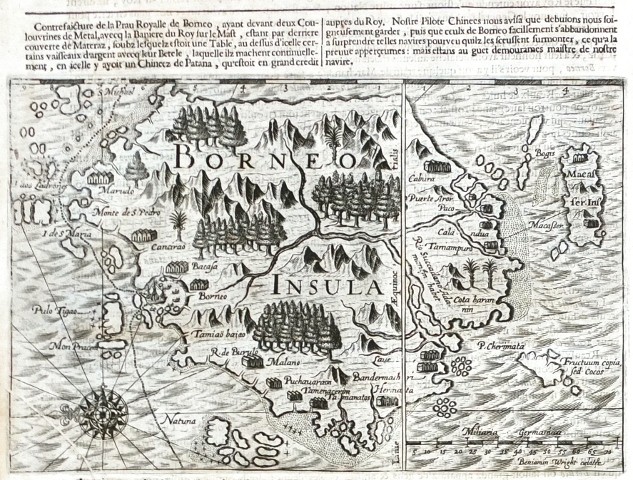 Contrefaicture de la Prau Royalle de Borneo, ayant devant deux Cou-
louvrines de Metal, avecq la Baniere du Roy sur le Mast, estant par derriere
couverte de Matrraz, soubz lesquelz estoit une Table, au dessus d'icelle cer-
tains vaisseaux d'argent avecq leur Betele, laquelle ilz machent continuelle-
ment, en icelle y ayoit un Chinecz de Patana, qu'estoit en grand credit
aupres du Roy. Nostre Pilote Chinees nous avisa que debuions nous soi-
gneusement garder, puis que ceulx de Borneo facillement s'abandonnent
a surprendre telles navires pourveu quilz les seussent surmonter, ce qu'a la
preuue apperçeumes: mais estans au guet demourames maistre de nostre
navire.
BORNEO
Marudo
Monte de S. Pedro
I. de S. Maria
Cancirao
Bacaja
Borneo
Pulo Tigao
Mon Pracem
Tamiao baixo
INSULA
R. de Burulo
Malano
Puchavarao
Tamenacrim
Tamanatos
Bandermachiri
Hermata
Laue
Natuna
Æquinoc
tialis
Linie
Cabura
Puerto
Paco
Cala
Tamanpuro
Cota baran
nin
Bogis
Macas
ser Ins
Macasser
P. Cherimata
Fructuum copia
sed Cocos
Miliaria Germanica
5 10 15 20 25 30 35 40 45 50 55 60 65 70
Beniamin Wright cælator